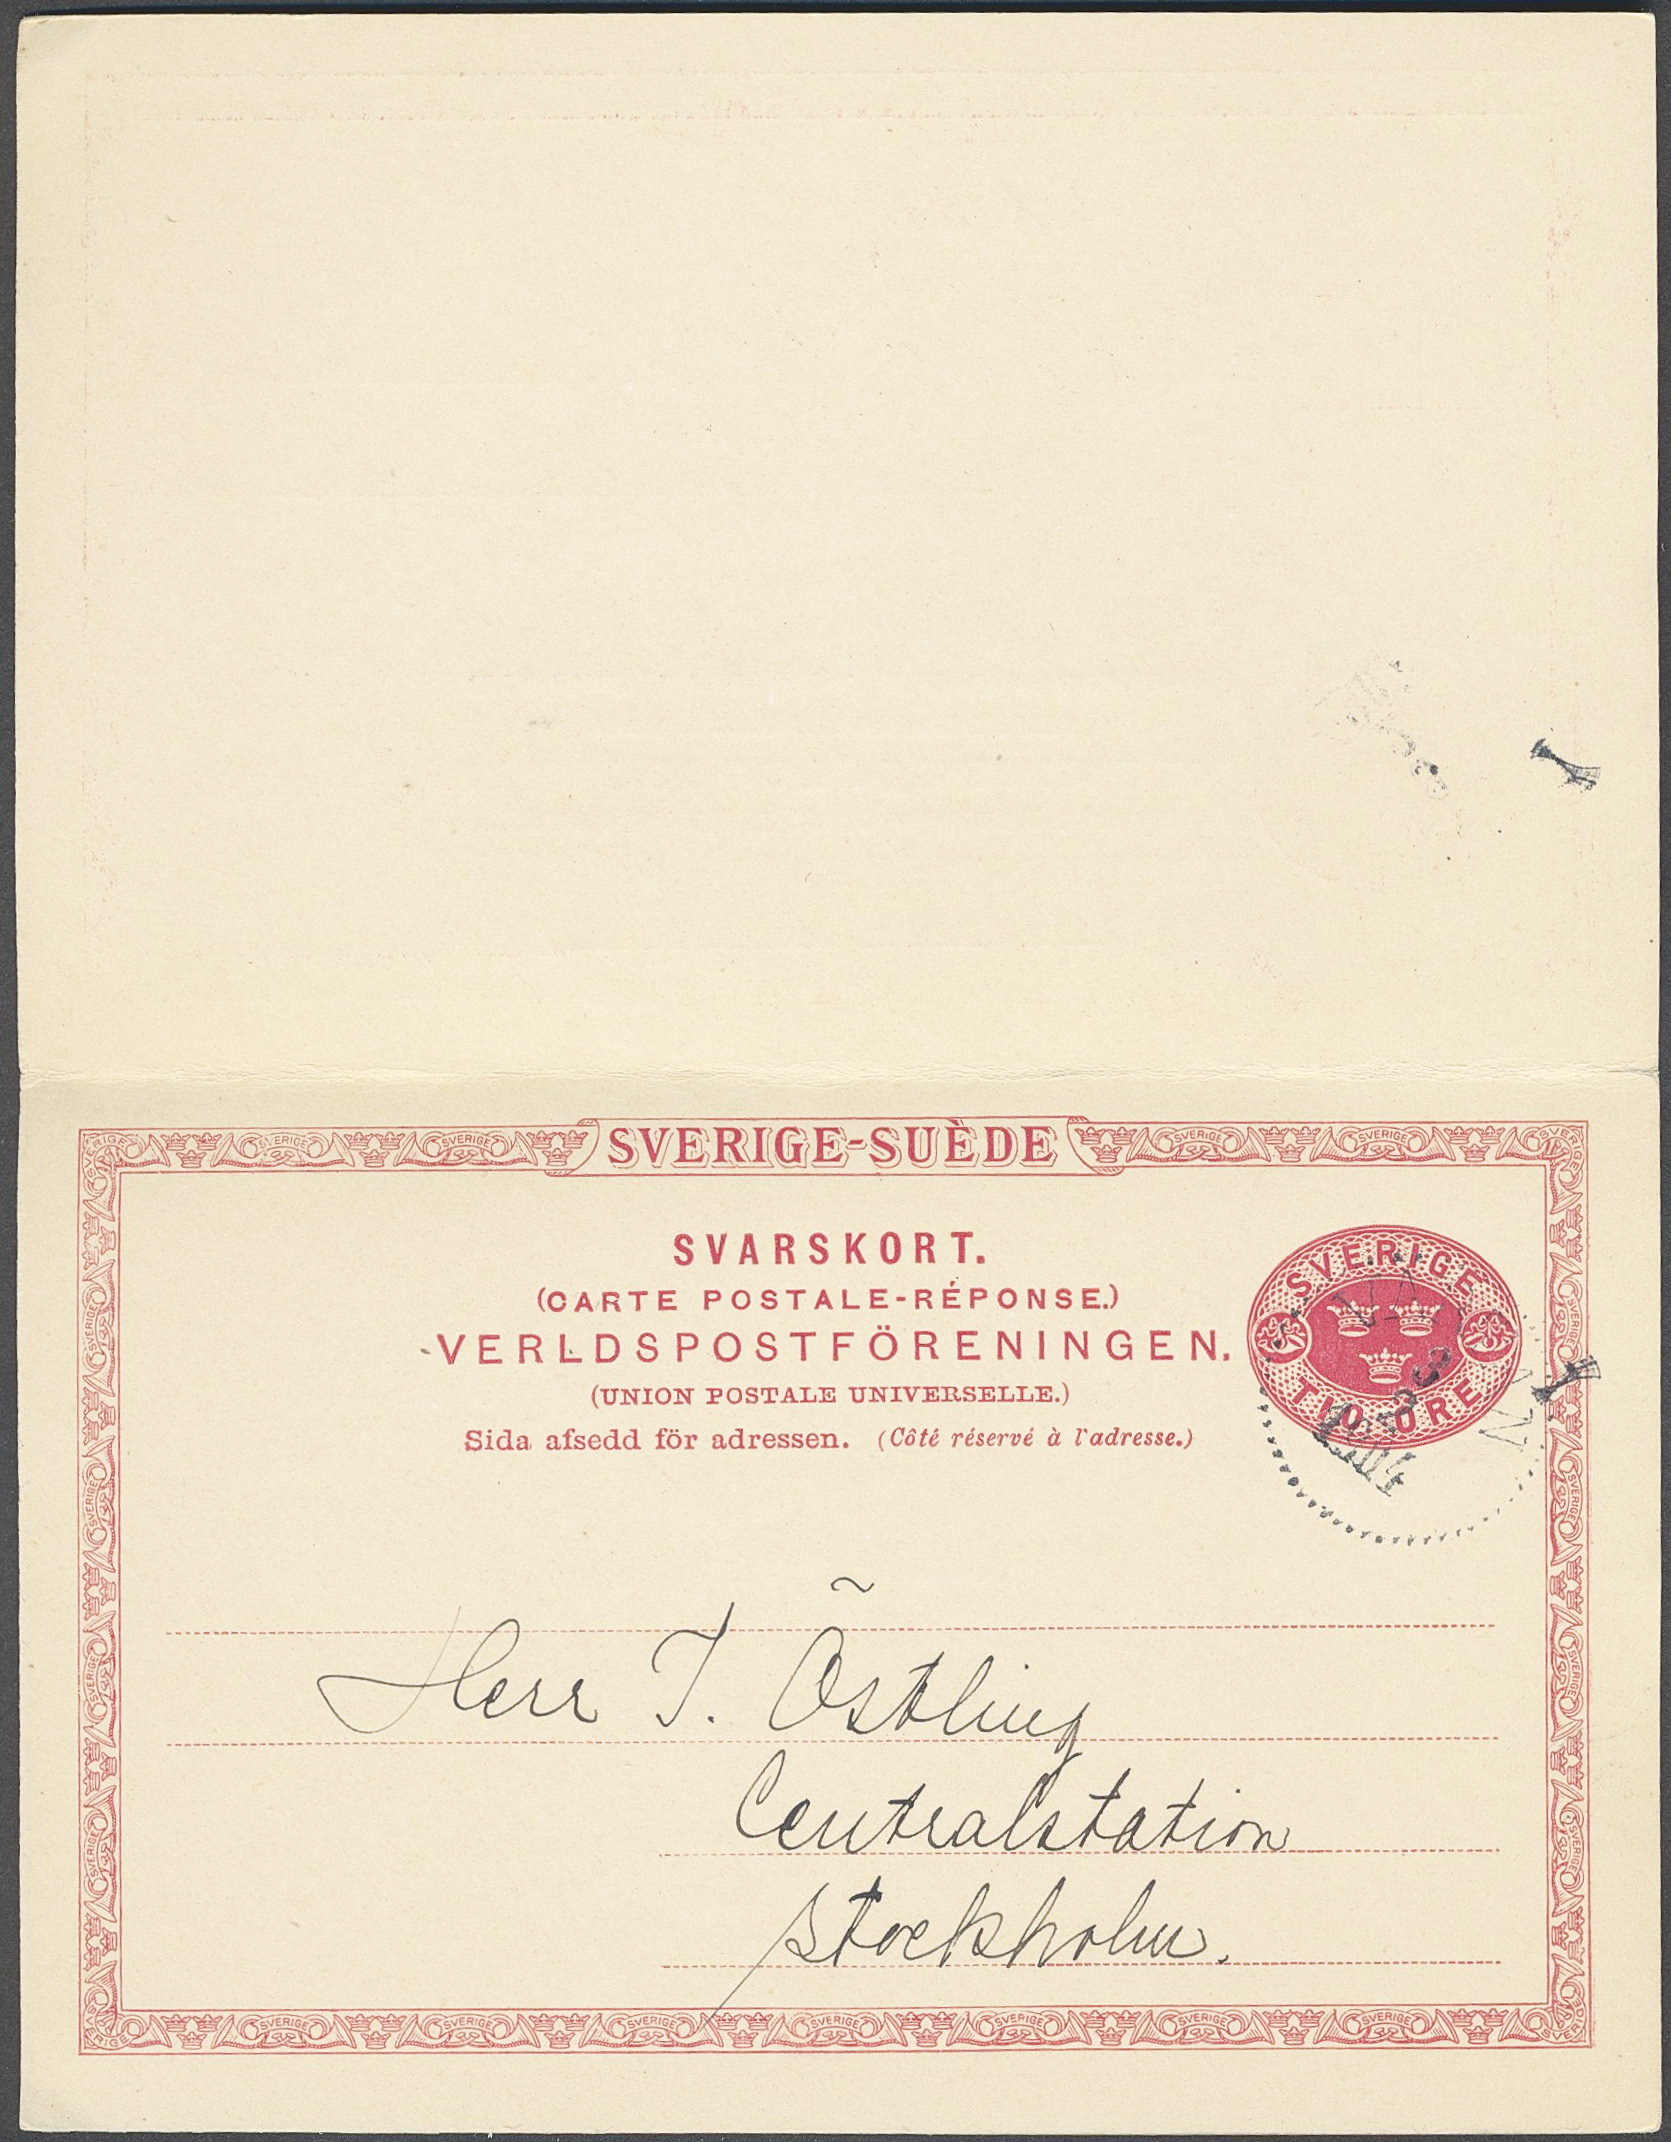 SVERIGE-SUÈDE
SVARSKORT.
(CARTE POSTALE-RÉPONSE.)
VERLDSPOSTFÖRENINGEN.
(UNION POSTALE UNIVERSELLE.)
Sida afsedd för adressen. (Côté réservé à l'adresse.)
SVERIGE
TIO ÖRE
Herr J. Östling
Centralstation
Stockholm.